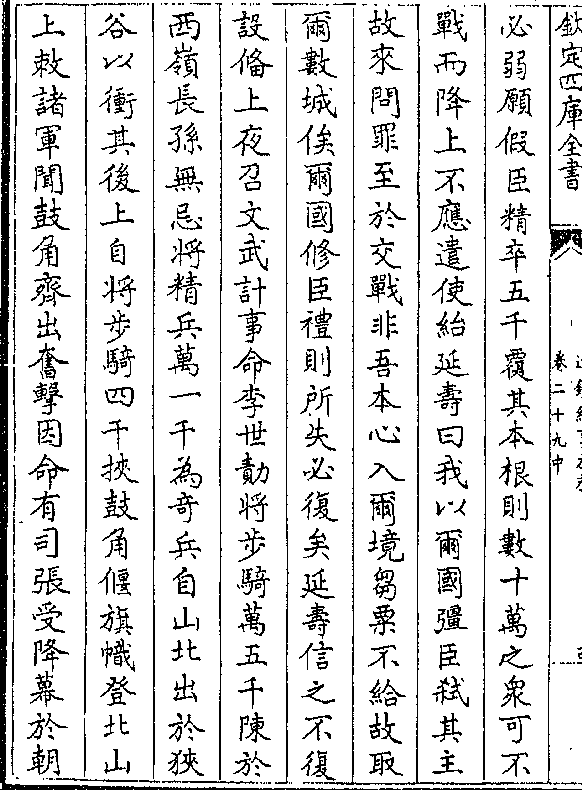 欽定四庫全書
卷二十九中
必弱願假臣精卒五千覆其本根則數十萬之衆可不
戰而降上不應遣使紿延壽曰我以爾國彊臣弑其主
故來問罪至於交戰非吾本心入爾境芻粟不給故取
爾數城俟爾國修臣禮則所失必復矣延壽信之不復
設偹上夜召文武計事命李世勣將步騎萬五千陳於
西嶺長孫無忌將精兵萬一千為奇兵自山北出於狹
谷以衝其後上自將步騎四千挾鼓角偃旗幟登北山
上敕諸軍聞鼓角齊出奮擊因命有司張受降幕於朝